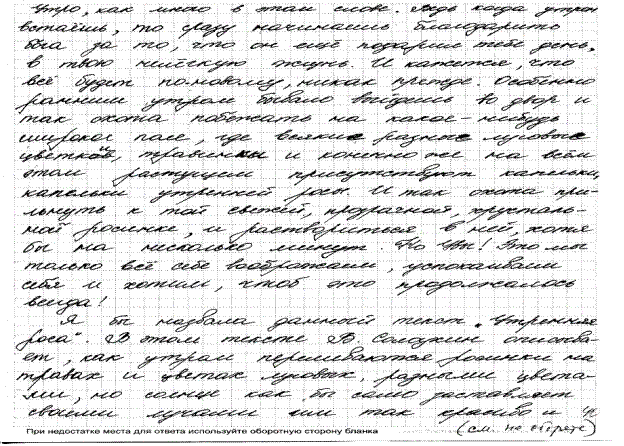 Утро, как много в этом слове. Ведь когда утром
встаёшь, то сразу начинаешь благодарить
бога за то, что он ещё подарил тебе день,
в твою нелёгкую жизнь. И кажется, что
всё будет по-новому, никак прежде. Особенно
ранним утром бывало выйдешь во двор и
так охота побежать на какое-нибудь
широкое поле, где всякие разные луговые
цветков, травинки и конечно же на всём
этом растущем присутствуют капельки,
капельки утренней росы. И так охота при-
льнуть к той свежей, прозрачной, хрусталь-
ной росинке, и раствориться в ней, хотя
бы на несколько минут. Но увы! Это мы
только всё себе воображаем, успокаиваем
себя и хотим, чтоб это продолжалось
всегда!
Я бы назвала данный текст „Утренняя
роса“. В этом тексте В. Солоухин описыва-
ет, как утром переливаются росинки на
травах и цветах луговых, разными цвета-
ми, но солнце как бы само заставляет
своими лучами им так красиво и
При недостатке места для ответа используйте оборотную сторону бланка
(см. на обороте)